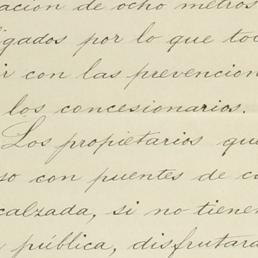 ación de ocho metros
igados por lo que to
ir con las prevencion
los concesionarios.
Los propietarios qu
so con puentes de c
calzada, si no tiene
pública, disfrutara